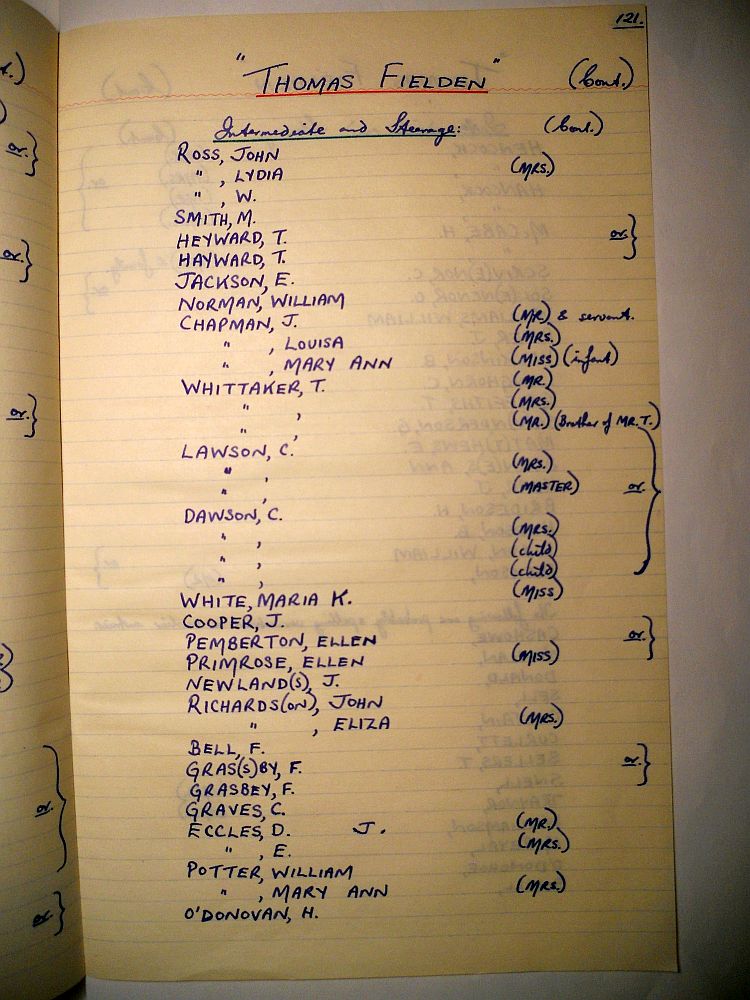 121.
"THOMAS FIELDEN" (Cont.)
Intermediate and Steerage: (Cont.)
ROSS, JOHN
" , LYDIA (MRS.)
" , W.
SMITH, M.
HEYWARD, T. or }
HAYWARD, T.
JACKSON, E.
NORMAN, WILLIAM
CHAPMAN, J. (MR) & servant.
" , LOUISA (MRS.)
" , MARY ANN (MISS) (infant)
WHITTAKER, T. (MR.)
" , (MRS.)
" , (MR.) (Brother of MR. T.)
LAWSON, C.
" , (MRS.)
" , (MASTER) or }
DAWSON, C.
" , (MRS.)
" , (child)
" , (child)
WHITE, MARIA K. (MISS)
COOPER, J.
PEMBERTON, ELLEN or }
PRIMROSE, ELLEN (MISS)
NEWLAND(S), J.
RICHARDS(ON), JOHN
" , ELIZA (MRS.)
BELL, F.
GRAS(S)BY, F. or }
GRASBEY, F.
GRAVES, C.
ECCLES, D. J. (MR.)
" , E. (MRS.)
POTTER, WILLIAM
" , MARY ANN (MRS.)
O'DONOVAN, H.